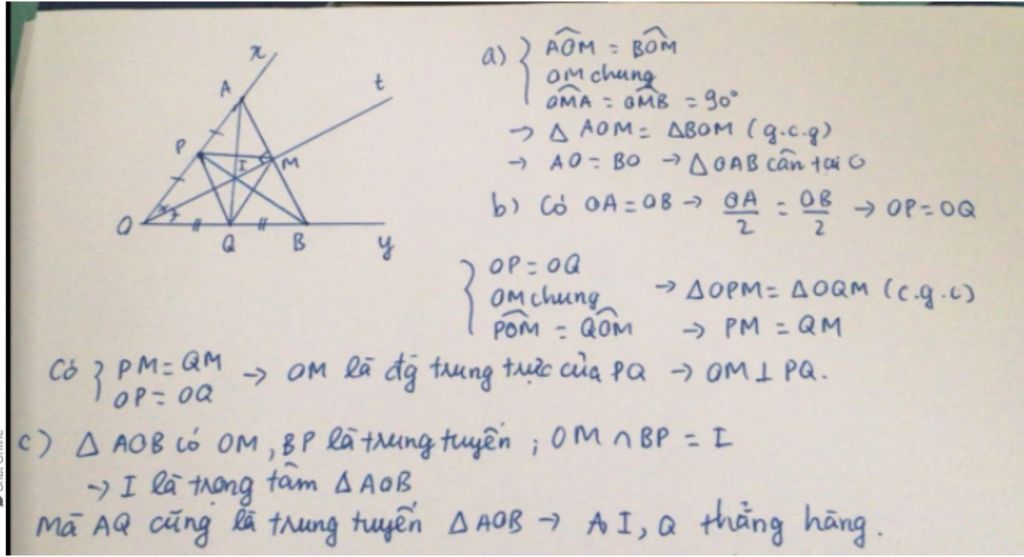 x
A
t
P
I
M
O
Q
B
y
a) { \widehat{AOM} = \widehat{BOM}
OM chung
\widehat{OMA} = \widehat{OMB} = 90°
→ Δ AOM = ΔBOM (g.c.g)
→ AO = BO → ΔOAB cân tại O
b) Có OA = OB → OA/2 = OB/2 → OP = OQ
{ OP = OQ
OM chung → ΔOPM = ΔOQM (c.g.c)
\widehat{POM} = \widehat{QOM} → PM = QM
Có { PM = QM → OM là đg trung trực của PQ → OM ⊥ PQ.
OP = OQ
c) Δ AOB có OM, BP là trung tuyến ; OM ∩ BP = I
→ I là trọng tâm Δ AOB
Mà AQ cũng là trung tuyến Δ AOB → A I, Q thẳng hàng.